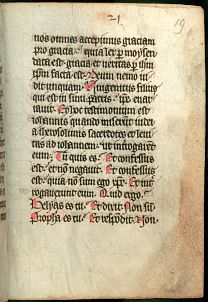 21
19
nos omnes accepimus graciam
pro gracia. quia lex p moysen
data est. gracia et veritas p ihm
xpm facta est. Deum nemo vi
dit unquam. Unigenitus filius
qui est in sinu patris ipse enar
rauit. Et hoc testimonium est
iohannis quando miserunt iudei
ab iherosolimis sacerdotes et leui
tas ad iohannem. ut interrogarēt
eum. Tu quis es. Et confessus
est. et nō negauit. Et confessus
est. quia nō sum ego xpc. Et int
rogauerunt eum. Quid ergo.
Helyas es tu. Et dixit. Non sū.
Propha es tu. Et respōdit. Non.